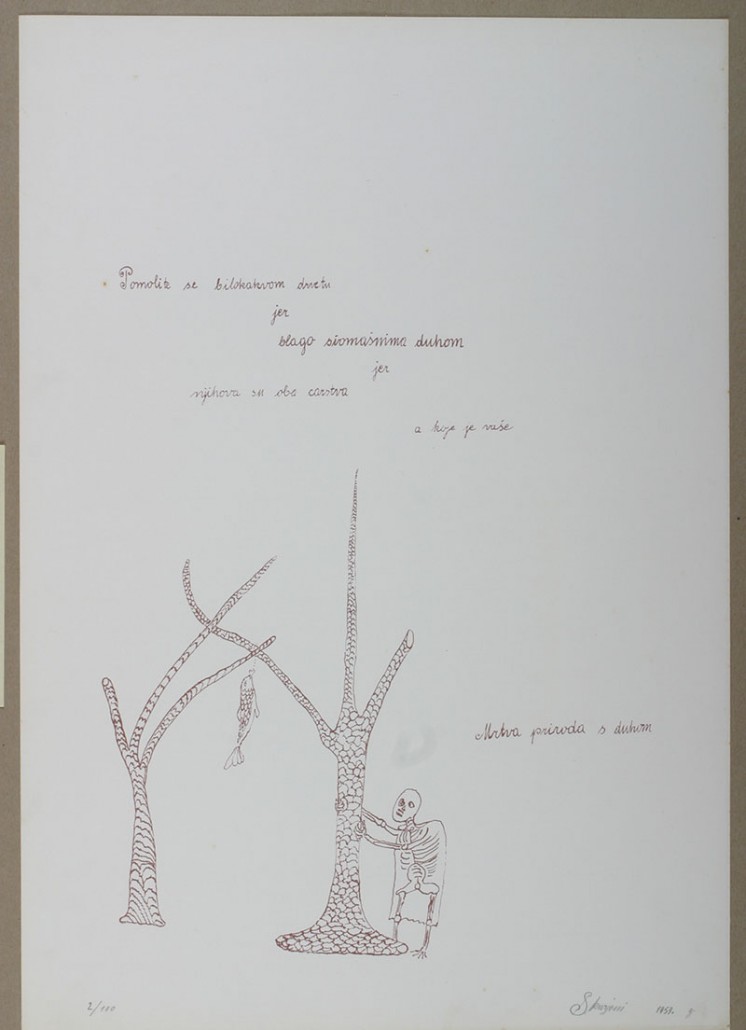 Pomolite se bilokakvom drvetu
jer
blago siromašnima duhom
jer
njihova su oba carstva
a koje je vaše
Mrtva priroda s duhom
2/110